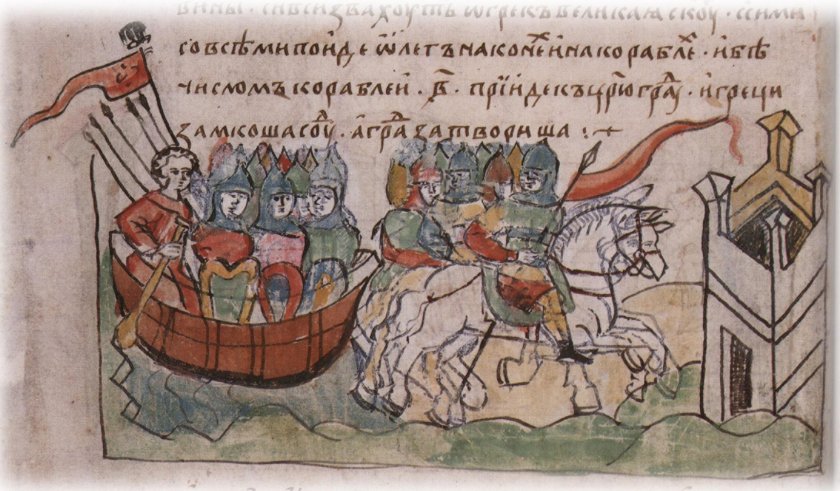 вины · си вси звахоуть ѿ грекъ великаѧ скоуⷴ · с сими
со всѣми поиде ѿлегъ на конеⷯ и на кораблеⷯ · и бѣ
числомъ кораблеи · в҃ · прїиде къ цр҃юграⷣ · и греци
замкоша соуⷣ · а граⷣ затвориша :+